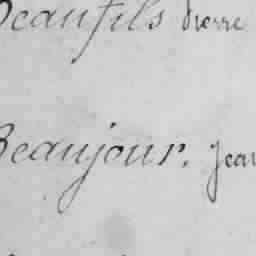 Beaufils Pierre
Beaujour. Jean